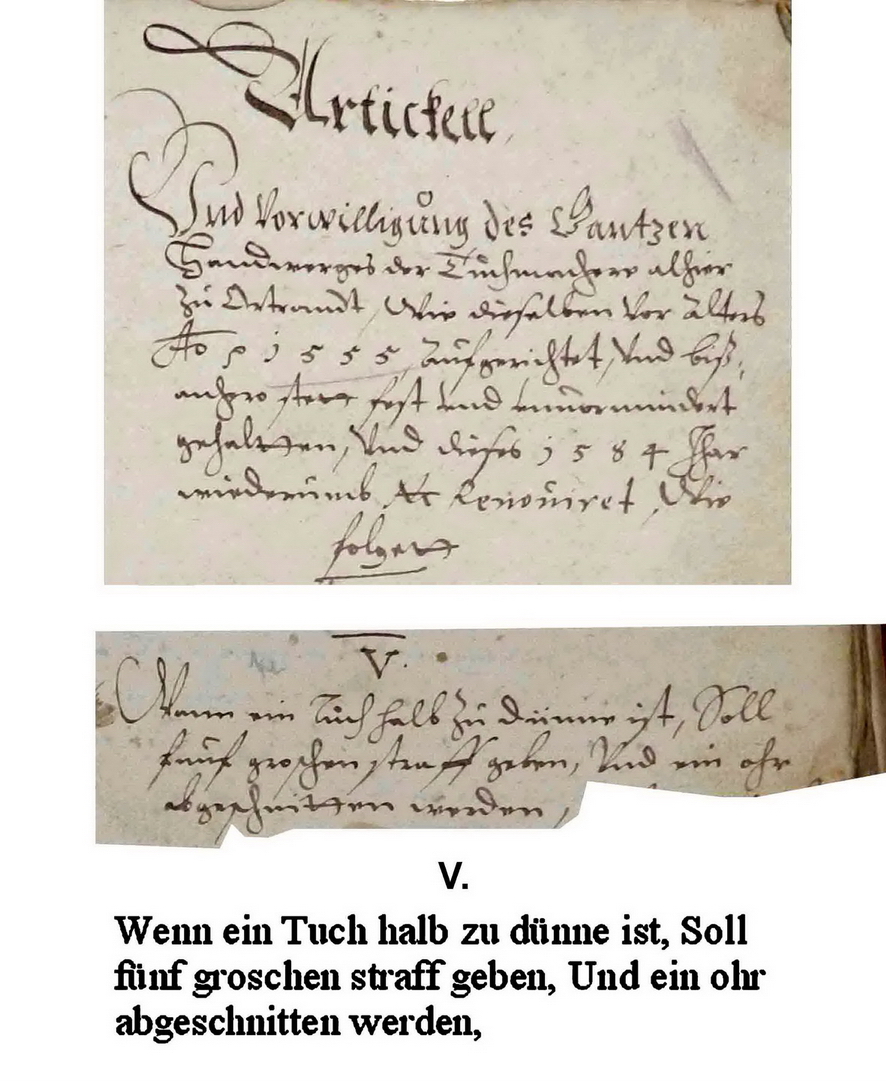 Artickell
Und Vorwilligung des Gantzen
Handwerges der Tuchmachere alhier
zu Ortrandt, Wie dieselben Vor alters
Ao 1555, Aufgerichtet, Und biß,
anhero stett fest und unvormindert
gehaltten, Und dieses 1584 Jhar
wiederumb Renoviret, Wie
folgett
V.
Wenn ein Tuch halb zu dünne ist, Soll
funf groschen straff geben, Und ein ohr
abgeschnitten werden,
V.
Wenn ein Tuch halb zu dünne ist, Soll
fünf groschen straff geben, Und ein ohr
abgeschnitten werden,